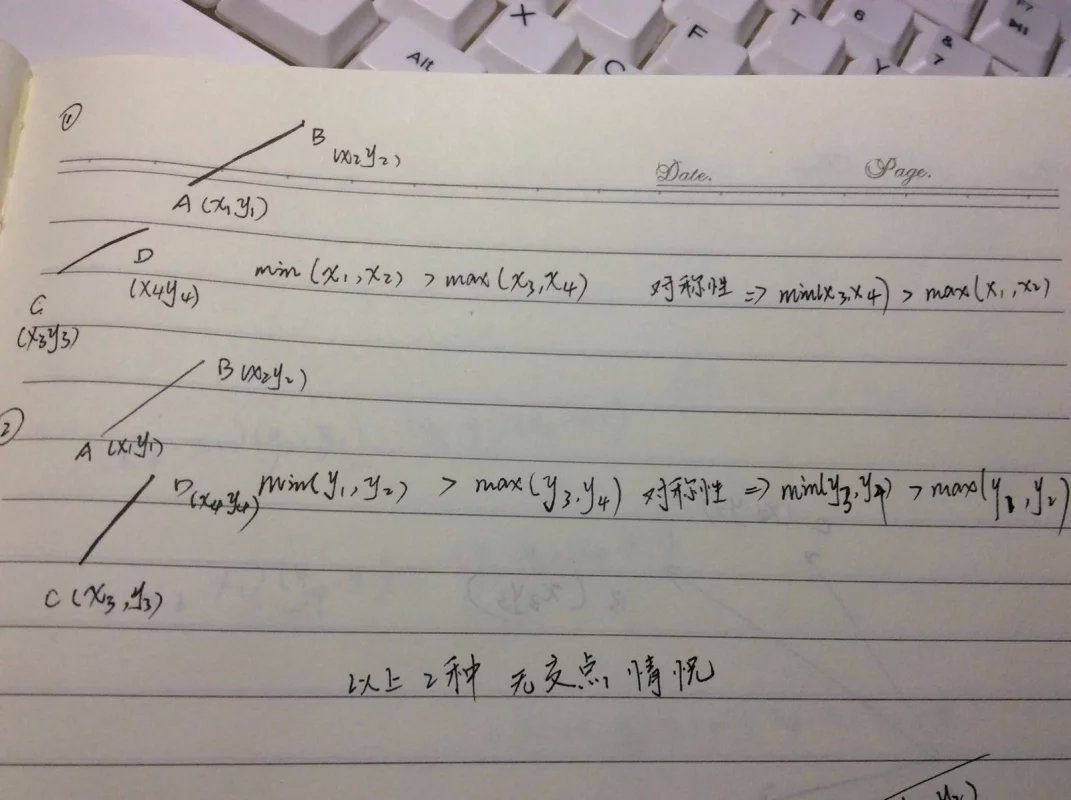 X F T 6 & 7 Y Alt C F7
①
B
(x₂y₂)
Date. Page.
A (x₁y₁)
D
(x₄y₄)
min (x₁,x₂) > max (x₃,x₄) 对称性 => min(x₃,x₄) > max(x₁,x₂)
C
(x₃y₃)
B (x₂y₂)
②
A (x₁y₁)
D (x₄y₄) min(y₁,y₂) > max(y₃,y₄) 对称性 => min(y₃,y₄) > max(y₁,y₂)
C (x₃,y₃)
以上2种 无交点情况
y₂)